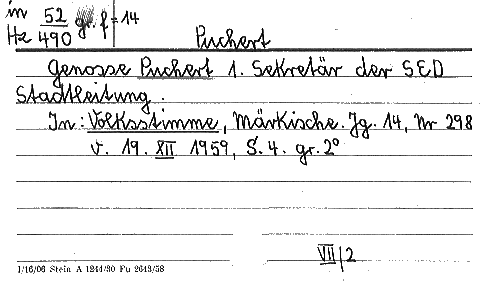 in 52 gr. f = 14
Hz 490
Puchert
Genosse Puchert 1. Sekretär der SED
Stadtleitung.
In: Volksstimme, Märkische. Jg. 14, Nr 298
v. 19. XII 1959, S. 4. gr. 2°
VII/2
1/16/06 Stein A 1244/30 Fu 2643/58